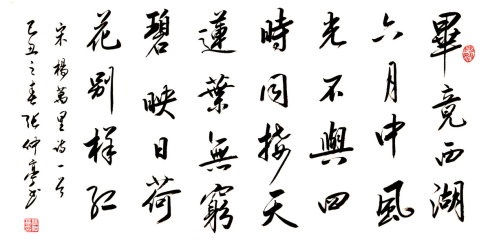 畢竟西湖
六月中風
光不與四
時同接天
蓮葉無窮
碧映日荷
花別樣紅
宋楊萬里詩一首
己丑之春張仲亭書